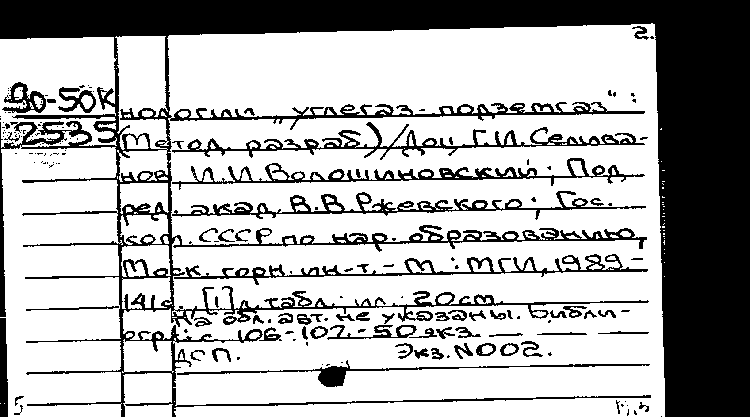 2.
90-50К нологии „углегаз-подземгаз“ :
2535 (Метод. разраб.) / Доц. Г.И. Селива-
нов, И.И. Волошиновский ; Под
ред. акад. В.В. Ржевского ; Гос.
ком. СССР по нар. образованию,
Моск. горн. ин-т. - М. : МГИ, 1989. -
141 с., [1] л. табл. : ил. ; 20 см.
На обл. авт. не указаны. Библи-
огр.: с. 106-107. - 50 экз.
ДСП. Экз. N002.
5